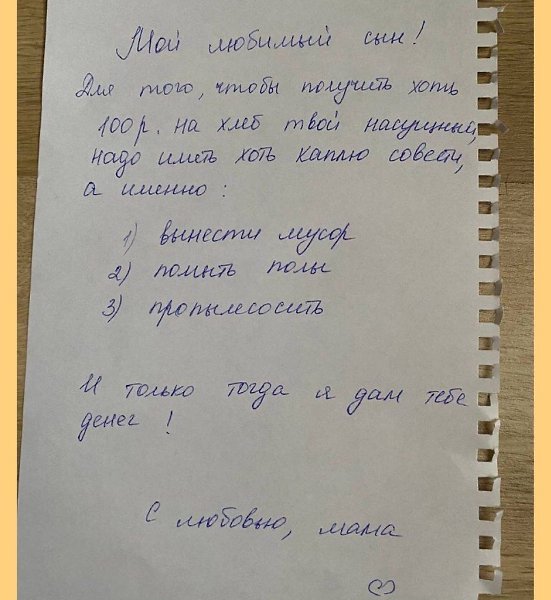 Мой любимый сын!
Для того, чтобы получить хоть
100р. на хлеб твой насущный,
надо иметь хоть каплю совести,
а именно:
1) вынести мусор
2) помыть полы
3) пропылесосить
И только тогда я дам тебе
денег!
С любовью, мама